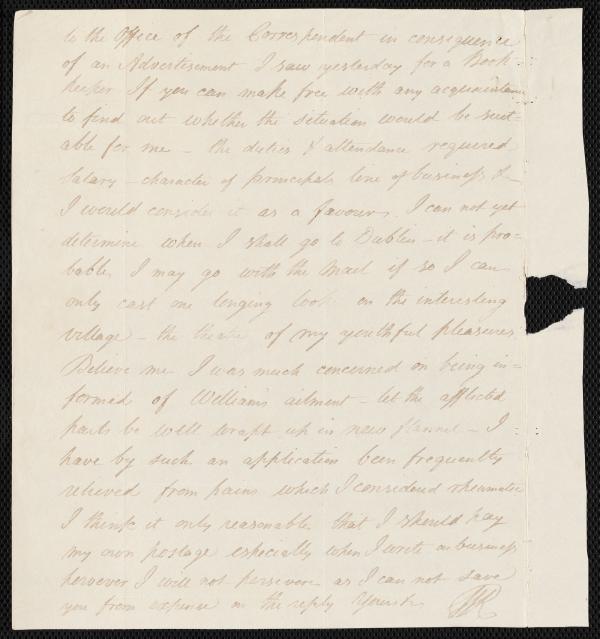 to the Office of the Correspondent in consequence
of an Advertisement I saw yesterday for a Book-
keeper If you can make free with any acquaintance
to find out whether the situation would be suit-
able for me – the duties & attendance required
Salary – character of principals line of business &c
I would consider it as a favour. I can not yet
determine when I shall go to Dublin – it is pro-
bable I may go with the Mail if so I can
only cast one longing look on the interesting
village – the theatre of my youthful pleasures
Believe me I was much concerned on being in-
formed of William's ailment – let the afflicted
parts be well wrapt up in new flannel – I
have by such an application been frequently
relieved from pains which I considered rheumatic
I think it only reasonable that I should pay
my own postage especially when I wrote on business
however I will not persevere as I can not save
you from expence on the reply Yours